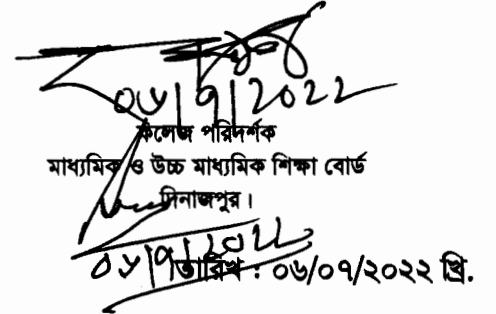 ০৬/৭/২০২২
কলেজ পরিদর্শক
মাধ্যমিক ও উচ্চ মাধ্যমিক শিক্ষা বোর্ড
দিনাজপুর।
০৬/৭/২০২২
তারিখ : ০৬/০৭/২০২২ খ্রি.